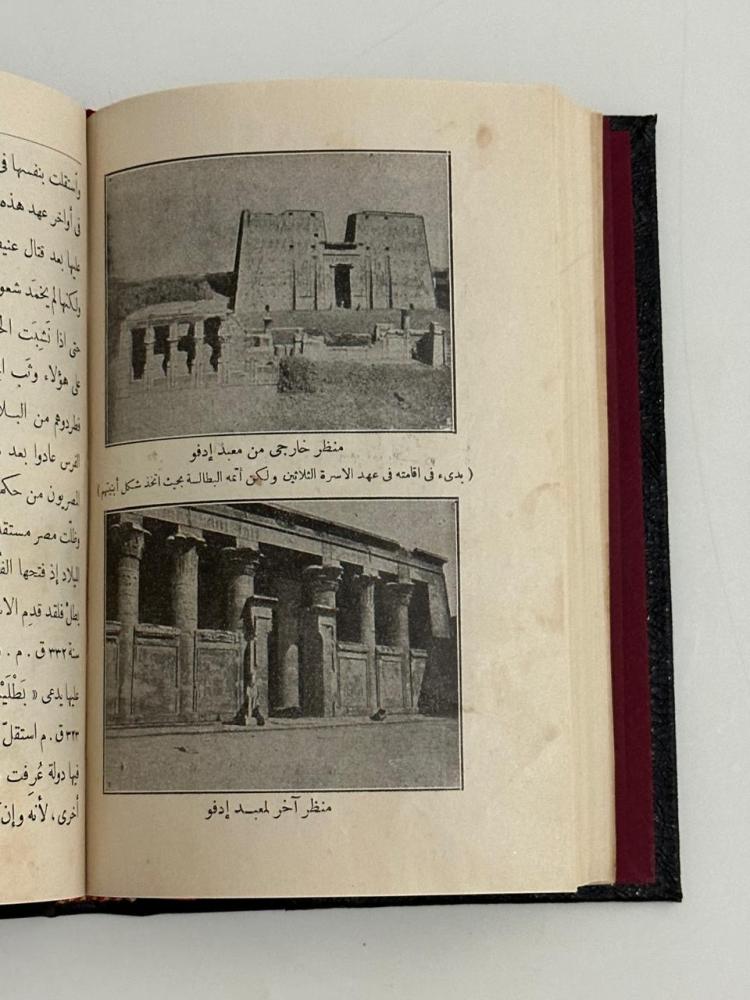 منظر خارجى من معبد إدفو
( بدىء فى اقامته فى عهد الاسرة الثلاثين ولكن أتمه البطالسة بحيث اتخذ شكل أبنيتهم )
منظر آخر لمعبد إدفو
وأستقلت بنفسها فى
فى أواخر عهد هذه
عليها بعد قتال
ولكنها لم يخمَد
حتى اذا نَشِبَت
على هؤلاء وثَب
فطردوهم من
الفرس عادوا بعد
المصريون من
وظلّت مصر
البلاد إذ فتحها
يطلْ فلقد قدِم
سنة ٣٣٢ ق . م .
عليها يدعى «
٣٢٣ ق . م استقلّ
فيها دولة عُرِفت
أخرى ، لأنه وإن